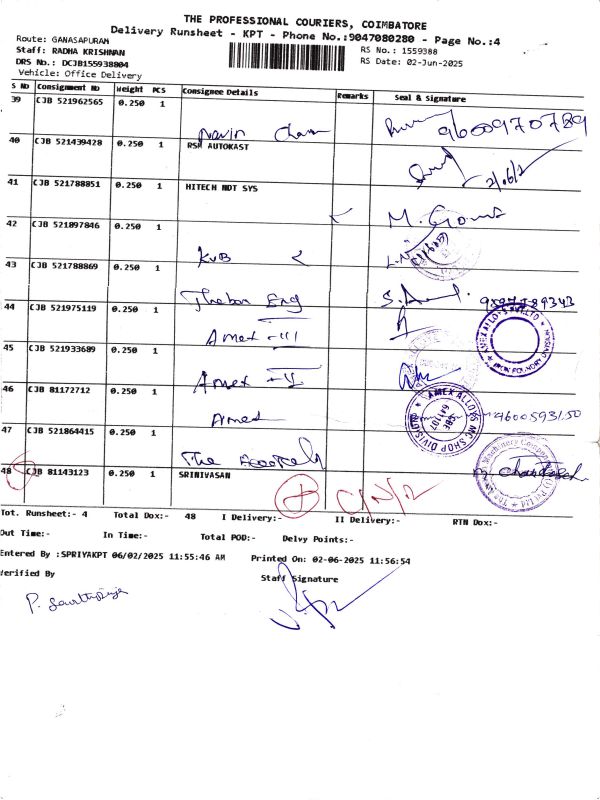 THE PROFESSIONAL COURIERS, COIMBATORE
Delivery Runsheet - KPT - Phone No.:9047080280 - Page No.:4
Route: GANASAPURAM
RS No.: 1559388
Staff: RADHA KRISHNAN
DRS No.: DCJB155938804
RS Date: 02-Jun-2025
Vehicle: Office Delivery
S No Consignment No Weight PCS Consignee Details Remarks Seal & Signature
39 CJB 521962565 0.250 1 Navin 9600970789
40 CJB 521439428 0.250 1 RSM AUTOKAST
41 CJB 521788851 0.250 1 HITECH NDT SYS
42 CJB 521897846 0.250 1 KVB
43 CJB 521788869 0.250 1 Eng
44 CJB 521975119 0.250 1 Amex - III
45 CJB 521933689 0.250 1 Amex
46 CJB 81172712 0.250 1 Amex
47 CJB 521864415 0.250 1 The
48 CJB 81143123 0.250 1 SRINIVASAN
AMEX ALLOYS MC SHOP DIVISION
Tot. Runsheet:- 4 Total Dox:- 48 I Delivery:- II Delivery:- RTN Dox:-
Out Time:- In Time:- Total POD:- Delvy Points:-
Entered By :SPRIYAKPT 06/02/2025 11:55:46 AM Printed On: 02-06-2025 11:56:54
Verified By Staff Signature